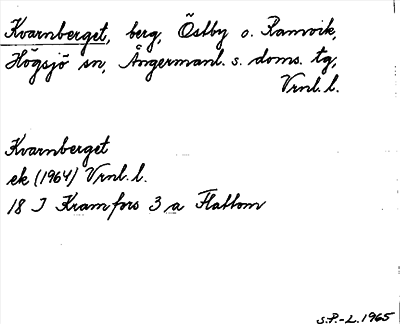 Kvarnberget, berg, Östby o. Ramvik,
Högsjö sn, Ångermanl. s. doms. tg,
Vrnl. l.
Kvarnberget
ek (1964) Vrnl. l.
18 J Kramfors 3 a Flattom
S.P.-L. 1965